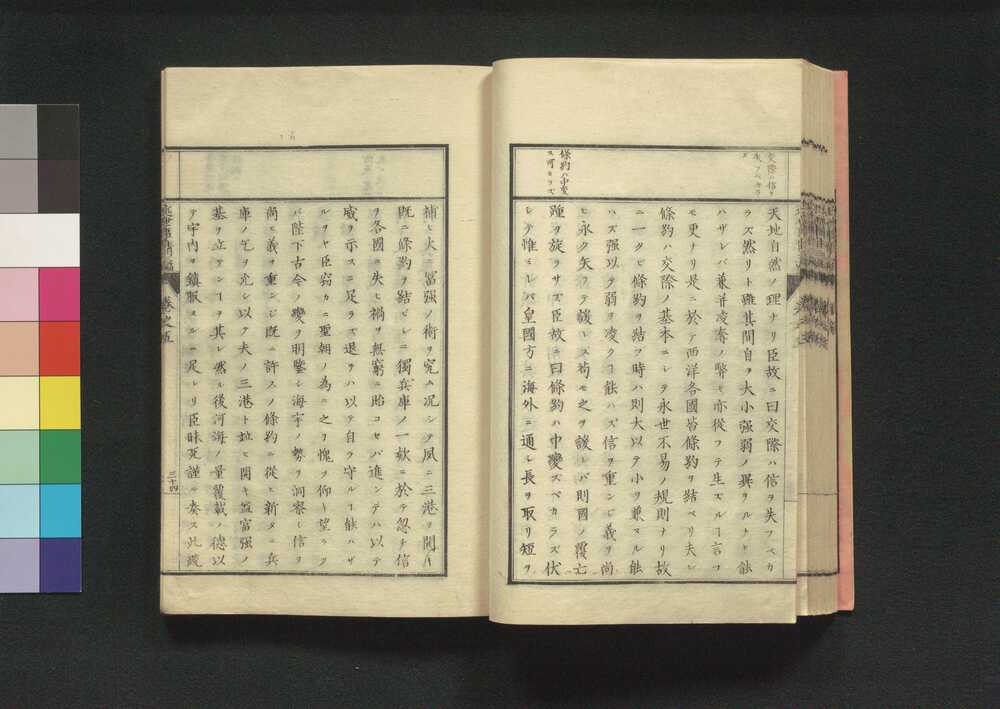 交際ハ信ヲ
失フベカラ
ズ
天地自然ノ理ナリ臣故ニ曰交際ハ信ヲ失フベカ
ラズ然リト雖其間自ヲ大小强弱ノ異ヲルナキ能
ハザレバ兼并凌奪ノ弊モ亦從フテ生ズルヿ言フ
モ更ナリ是ニ於テ西洋各國皆條約ヲ結ベリ夫レ
條約ハ交際ノ基本ニシテ永世不易ノ規則ナリ故
ニ一タビ條約ヲ結フ時ハ則大以テ小ヲ兼マル能
ハズ强以テ弱ヲ凌クヿ能ハズ信ヲ重ンじ義ヲ尚
ヒ永ク矢フテ諼レズ苟モ之ヲ諼レバ則國ノ覆亡
踵ヲ旋ラサズ臣故ニ曰條約ハ中變スベカラズ伏
シテ惟ミレバ皇國方ニ海外ニ通シ長ヲ取リ短ヲ
條約ハ中變
ス可ラズ
補ヒ大ニ富强ノ術ヲ究ム况シヲ夙ニ三港ヲ開キ
既ニ條約ヲ結ビシニ獨兵庫ノ一欵ニ於テ忽チ信
ヲ各國ニ失ヒ禍ヲ無窮ニ貽コセバ進ンテハ以テ
威ヲ示スニ足ラズ退ヲハ以テ自ヲ守ルヿ能ハザ
ルヲヤ臣窃カニ聖朝ノ為ニ之ヲ愧ヲ仰キ望ラク
バ陛下古今ノ變ヲ明鑒シ海宇ノ勢ヲ洞察シ信ヲ
尚ヒ義ヲ重ンジ既ニ許スノ條約ニ從ヒ新タニ兵
庫ノ乞ヲ允シ以テ夫ノ三港ト竝ヒ開キ益富强ノ
基ヲ立テンヿヲ其レ然ル後河海ノ量覆載ノ德以
テ宇内ヲ鎮服スルニ足レリ臣昧死謹ニ奏ス此議
卷之五
三十四